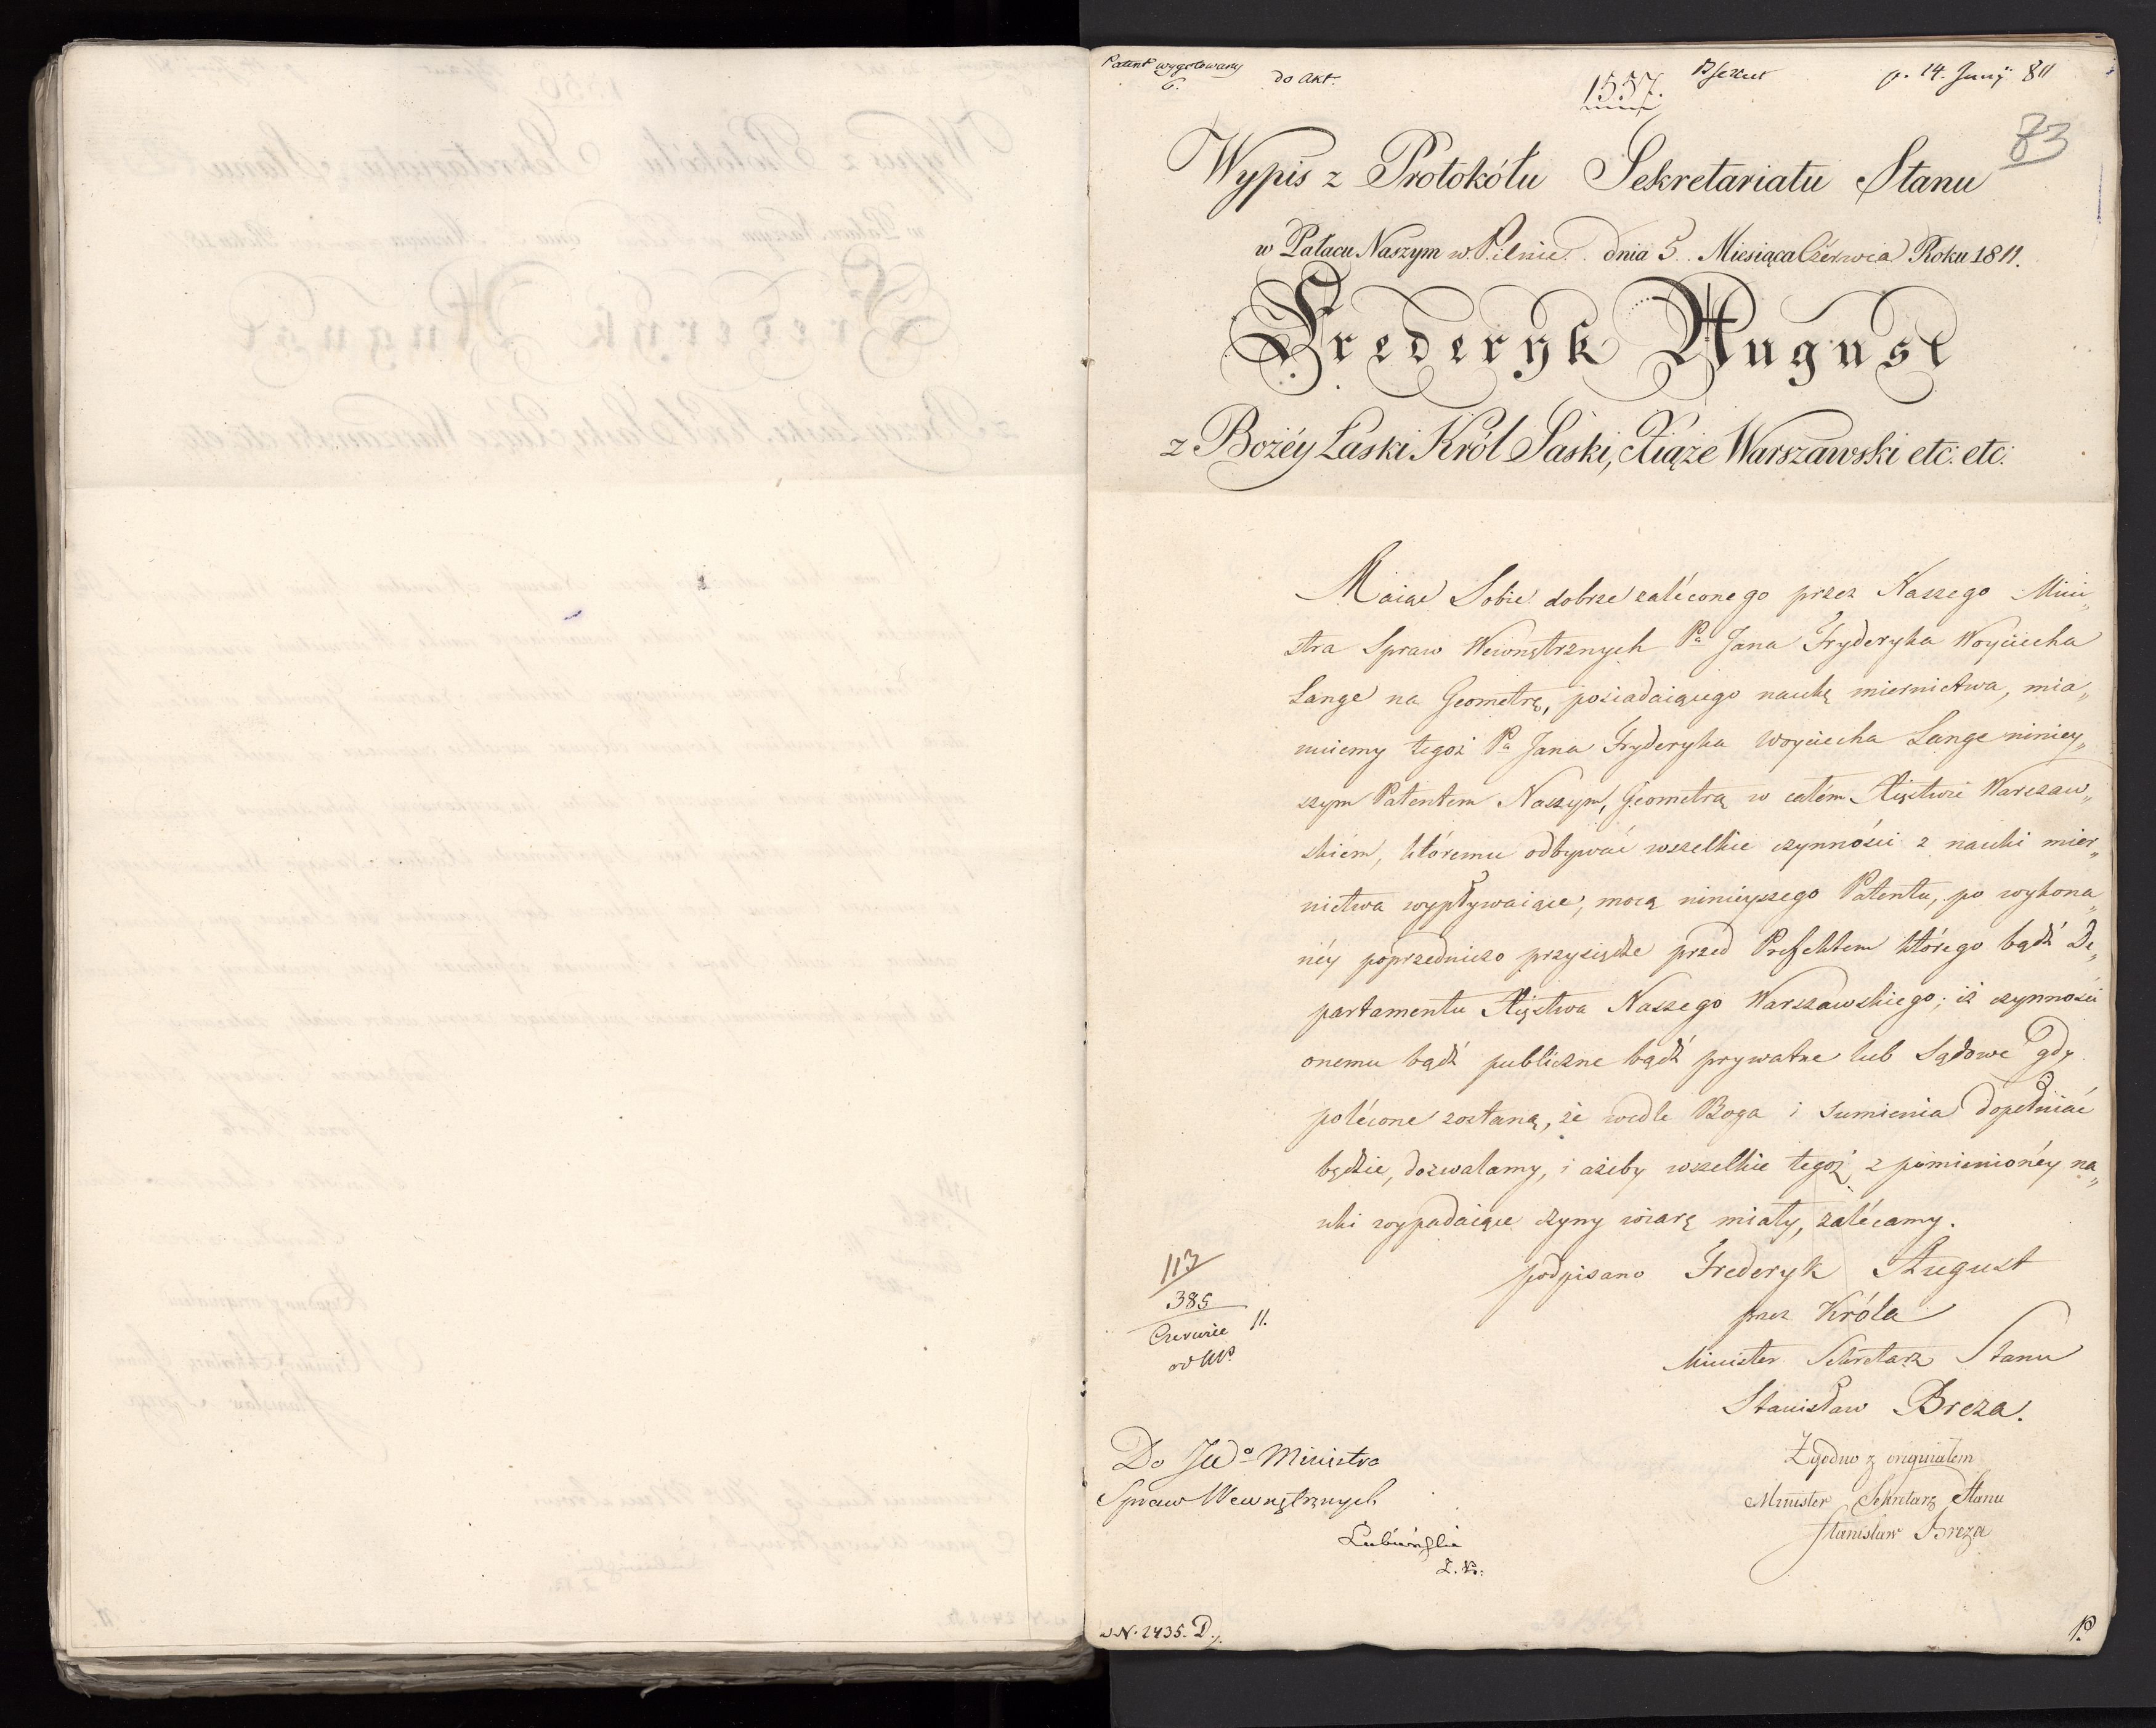 Patent wygotowany
do Akt.
1557.
p. 14. Junÿ 811
83
Wypis z Protokółu Sekretariatu Stanu
w Pałacu Naszym w Pilnic dnia 5. Miesiąca Czerwca Roku 1811.
Frederyk August
z Bożéy Łaski Król Saski, Xiąże Warszawski etc: etc:
Maiąc Sobie dobrze zaléconego przez Naszego Mini„
stra Spraw Wewnętrznych Pa Jana Fryderyka Woyciecha
Lange na Geometrę, posiadaiącego naukę miernictwa, mia„
nuiemy tegoż Pa Jana Fryderyka Woyciecha Lange niniey„
szym Patentem Naszym, Geometrą w całém Xięstwie Warszaw„
skiém, któremu odbywać wszelkie czynności z nauki mier„
nictwa wypływaiące, mocą ninieyszego Patentu, po wykona„
néy poprzedniczo przysiędze przed Prefektem którego bądź De„
partamentu Xięstwa Naszego Warszawskiego; iż czynności
onemu bądź publiczne bądź prywatne lub Sądowe gdy
polécone zostaną, że wedle Boga i Sumienia dopełniać
będzie, dozwalamy, i ażeby wszelkie tegoż z pomienionéy na„
uki wypadaiące czyny wiarę miały, zalécamy.
podpisano Frederyk August
przez Króla
Minister Sekretarz Stanu
Stanisław Breza.
113
385
Czerwiec 11.
Do JWo Ministra
Spraw Wewnętrznych
Zgodno z originałem
Minister Sekretarz Stanu
Stanisław Breza
Łubieński
N. 2435. D.